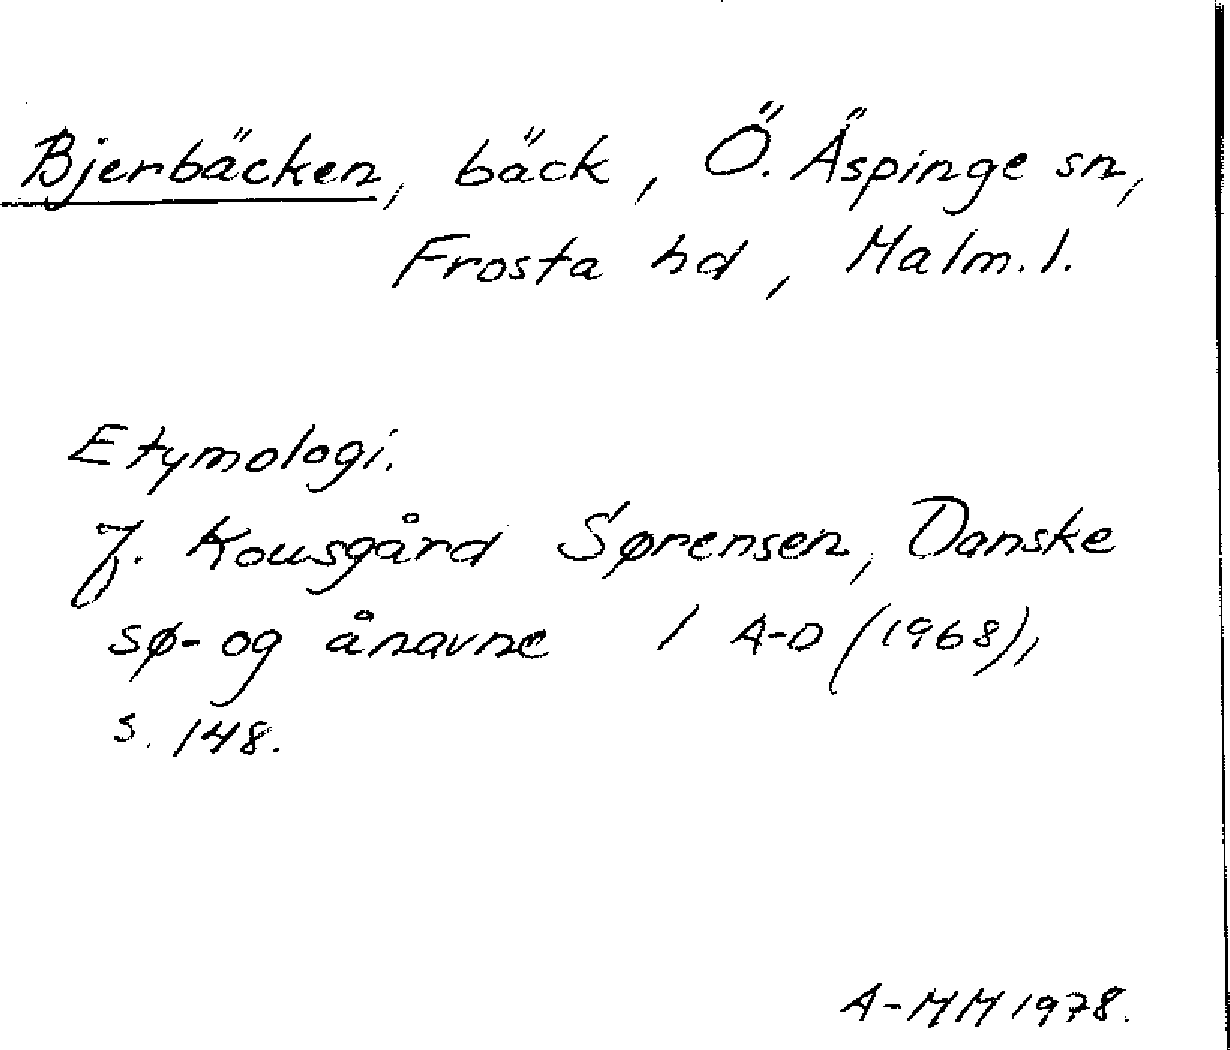 Bjerbäcken, bäck, Ö. Äspinge sn,
Frosta hd, Malm. l.
Etymologi.
J. Kousgård Sørensen, Danske
sø- og ånavne 1 A-D (1968),
s. 148.
A-MM 1978.